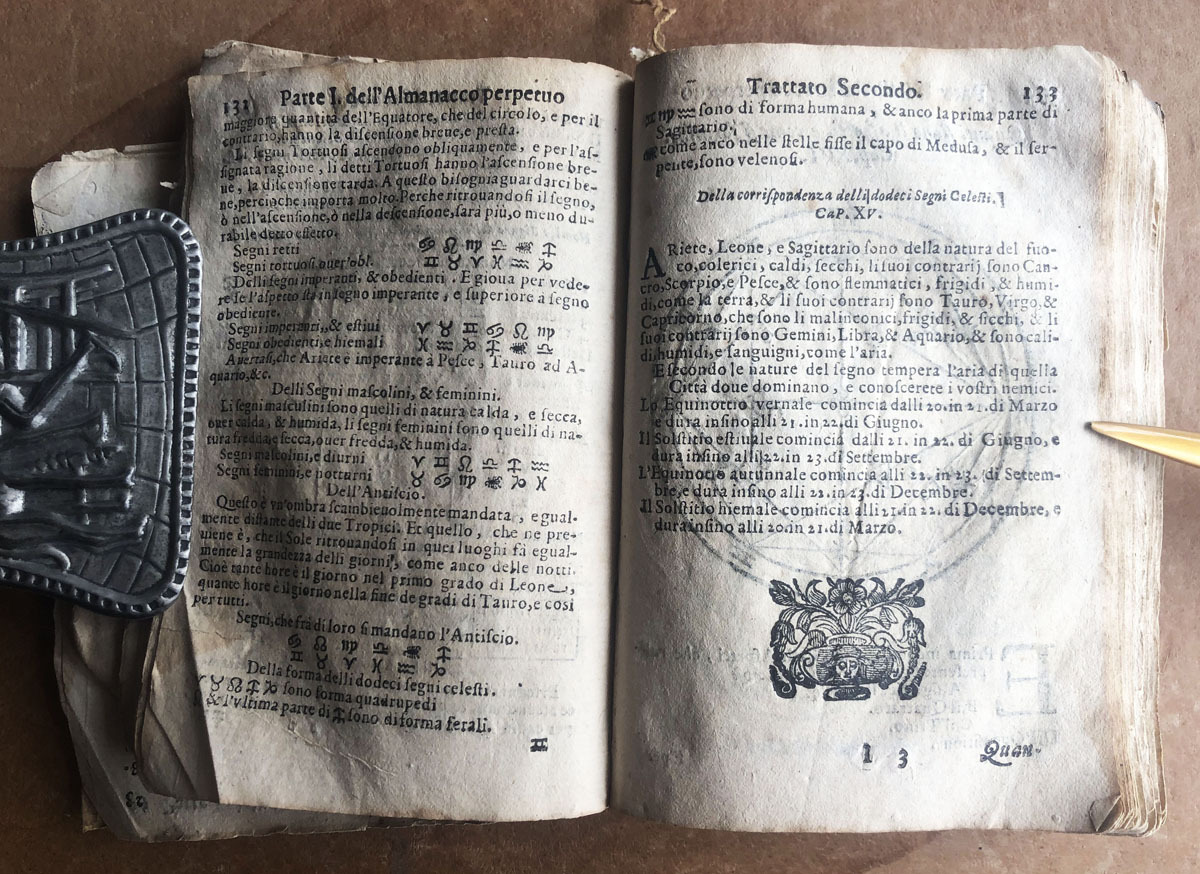 131 Parte I. dell'Almanacco perpetuo
maggiore quantità dell'Equatore, che del circolo, e per il
contrario, hanno la discensione breue, e presta.
Li segni Tortuosi ascendono obliquamente, e per l'as-
signata ragione, li detti Tortuosi hanno l'ascensione bre-
ue, la discensione tarda. A questo bisogna guardarci be-
ne, percioche importa molto. Perche ritrouandosi il segno,
ò nell'ascensione, ò nella descensione, sarà più, o meno du-
rabile detto effetto.
Segni retti ♋ ♌ ♍ ♎ ♏ ♐
Segni tortuosi ouer obl. ♊ ♉ ♈ ♓ ♒ ♑
Delli segni imperanti, & obedienti. E gioua per vede-
re se l'aspetto sta in segno imperante, e superiore à segno
obediente.
Segni imperanti, & estiui ♈ ♉ ♊ ♋ ♌ ♍
Segni obedienti, e hiemali ♓ ♒ ♑ ♐ ♏ ♎
Auertasi, che Ariete è imperante à Pesce, Tauro ad A-
quario, &c.
Delli Segni mascolini, & feminini.
Li segni masculini sono quelli di natura calda, e secca,
ouer calda, & humida, li segni feminini sono quelli di na-
tura fredda, e secca, ouer fredda, & humida.
Segni mascolini, e diurni ♈ ♊ ♌ ♎ ♐ ♒
Segni feminini, e notturni ♉ ♋ ♍ ♏ ♑ ♓
Dell'Antiscio.
Questo è vn'ombra scambieuolmente mandata, egual-
mente distante delli due Tropici. Et quello, che ne pre-
uiene è, che il Sole ritrouandosi in quei luoghi fà egual-
mente la grandezza delli giorni, come anco delle notti.
Cioè tante hore è il giorno nel primo grado di Leone,
quante hore è il giorno nella fine de gradi di Tauro, e così
per tutti.
Segni, che frà di loro si mandano l'Antiscio.
♋ ♌ ♍ ♎ ♏ ♐
♊ ♉ ♈ ♓ ♒ ♑
Della forma delli dodeci segni celesti.
♈ ♉ ♌ ♐ ♑ sono forma quadrupedi
& l'vltima parte di ♐ sono di forma ferali.
♊
Trattato Secondo. 133
♊ ♍ ♒ sono di forma humana, & anco la prima parte di
Sagittario,
come anco nelle stelle fisse il capo di Medusa, & il ser-
pente, sono velenosi.
Della corrispondenza delli dodeci Segni Celesti.
CAP. XV.
ARiete, Leone, e Sagittario sono della natura del fuo-
co, colerici, caldi, secchi, li suoi contrarij sono Can-
cro, Scorpio, e Pesce, & sono flemmatici, frigidi, & humi-
di, come la terra, & li suoi contrarij sono Tauro, Virgo, &
Capricorno, che sono li malinconici, frigidi, & sicchi, & li
suoi contrarij sono Gemini, Libra, & Aquario, & sono cali-
di, humidi, e sanguigni, come l'aria.
E secondo le nature del segno tempera l'aria di quella
Città doue dominano, e conoscerete i vostri nemici.
Lo Equinottio vernale comincia dalli 20. in 21. di Marzo
e dura insino alli 21. in 22. di Giugno.
Il Solstitio estiuale comincia dalli 21. in 22. di Giugno, e
dura insino alli 22. in 23. di Settembre.
L'Equinottio autunnale comincia alli 22. in 23. di Settem-
bre, e dura insino alli 22. in 23. di Decembre.
Il Solstitio hiemale comincia alli 21. in 22. di Decembre, e
dura insino alli 20. in 21. di Marzo.
I 3 Quan-